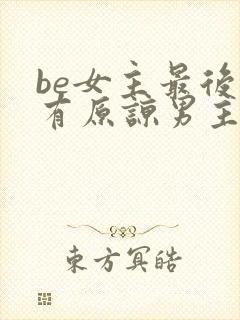 be女主最後
有原諒男主
東方冥皓